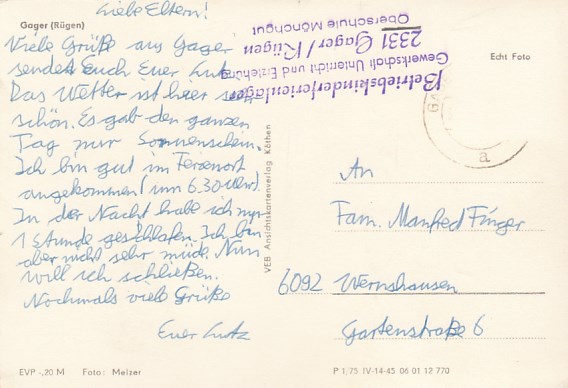 Liebe Eltern!
Gager (Rügen)
Viele Grüße aus Gager
sendet Euch Euer Lutz
Das Wetter ist hier sehr
schön. Es gab den ganzen
Tag nur Sonnenschein.
Ich bin gut im Ferienort
angekommen (um 6.30 Uhr).
In der Nacht habe ich nur
1 Stunde geschlafen. Ich bin
aber nicht sehr müde. Nun
will ich schließen.
Nochmals viele Grüße
Euer Lutz
EVP -,20 M Foto: Melzer
VEB Ansichtskartenverlag Köthen
Betriebskinderferienlager
Gewerkschaft Unterricht und Erziehung
2331 Gager/Rügen
Oberschule Mönchgut
Echt Foto
a
An
Fam. Manfred Finger
6092 Wernshausen
Gartenstraße 6
P 1/75 IV-14-45 06 01 12 770